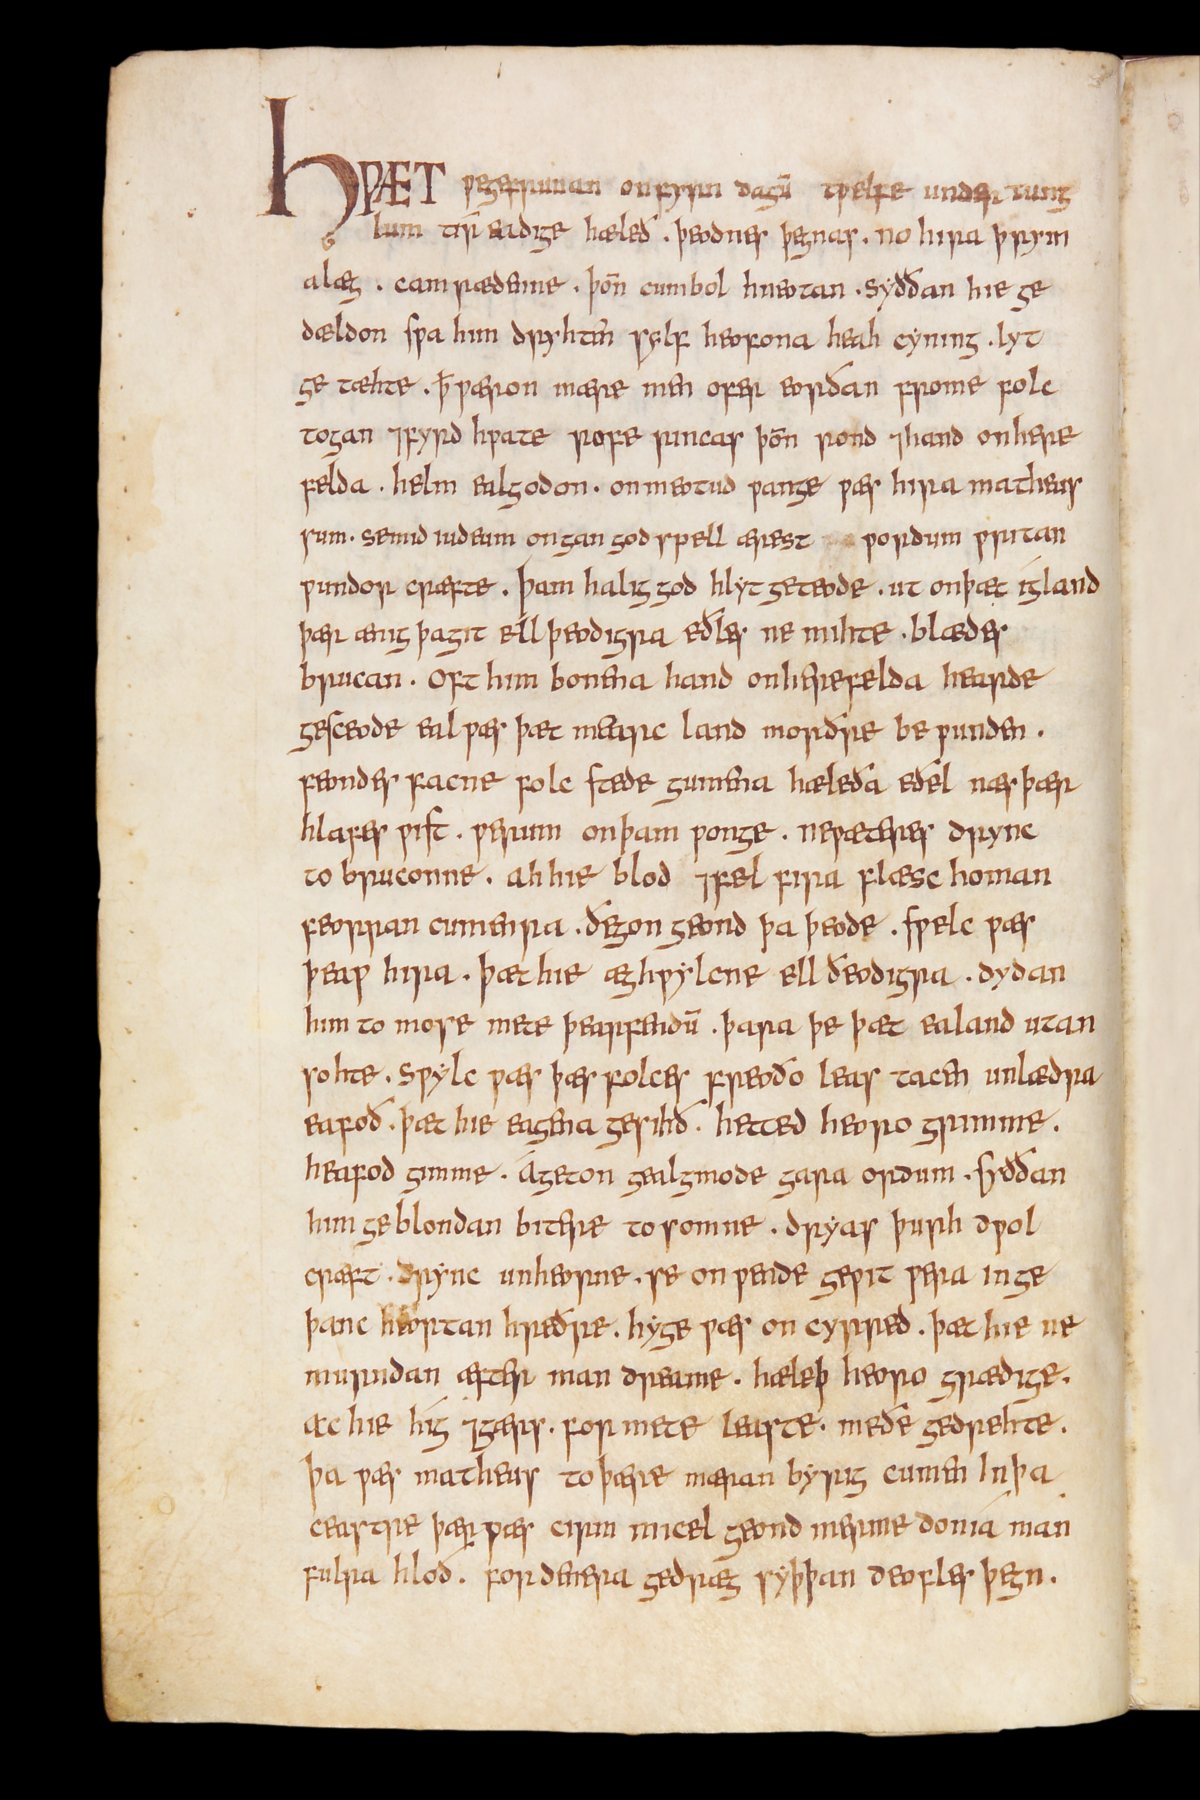 HǷÆT ƿegefrunan onfyrn dagū tƿelfe under tung
lum tir eadige hæleð . þeodnes þegnas . no hira þrym
alæg . camrædenne . þoñ cumbol hneotan . syððan hie ge
dældon sƿa him dryhten sylf heofona heah cyning . lyt
ge tæhte . ꝥ ƿæron mære men ofer eorðan frome folc
togan ⁊fyrd hƿate rofe rincas þoñ rond ⁊hand onhere
felda . helm ealgodon . onmeotud ƿange ƿæs hira matheus
sum . semid iudeum ongan godspell ærest ƿordum ƿritan
ƿundor cræfte . þam halig god hlyt geteode . ut onþæt igland
þær ænig þagit ell þeodigra eðles ne mihte . blædes
brucan . Oft him bonena hand onherefelda hearde
gesceode eal ƿæs þæt mearc land morðre be ƿunden .
feondes facne folc stede gumena hæleða eðel næs þær
hlafes ƿist . ƿerum onþam ƿonge . neƿæteres drync
to bruconne . ah hie blod ⁊fel fira flæsc homan
feorran cumenra . ðegon geond þa þeode . sƿelc ƿæs
þeaƿ hira . þæt hie æghƿylcne ell ðeodigra . dydan
him to mose mete þearfendū . þara þe þæt ealand utan
sohte . sƿylc ƿæs þæs folces freoðo leas tacen unlædra
eafoð . þæt hie eagena gesihð . hetted heoro grimme .
heafod gimme . Ageton gealgmode gara ordum . syððan
him geblondan bitere tosomne . dryas þurh dƿol
cræft . drync unheorne . se onƿende geƿit ƿera inge
þanc heortan hreðre . hyge ƿæs on cyrred . þæt hie ne
murndan æfter man dreame . hæleþ heoro grædige .
ac hie hig ⁊gærs . for mete leaste . meðe gedrehte .
þa ƿæs matheus to þære mæran byrig cumen Inþa
ceastre þær ƿæs cirm micel geond mermedonia man
fulra hloð . fordenera gedræg syþþan deofles þegn .